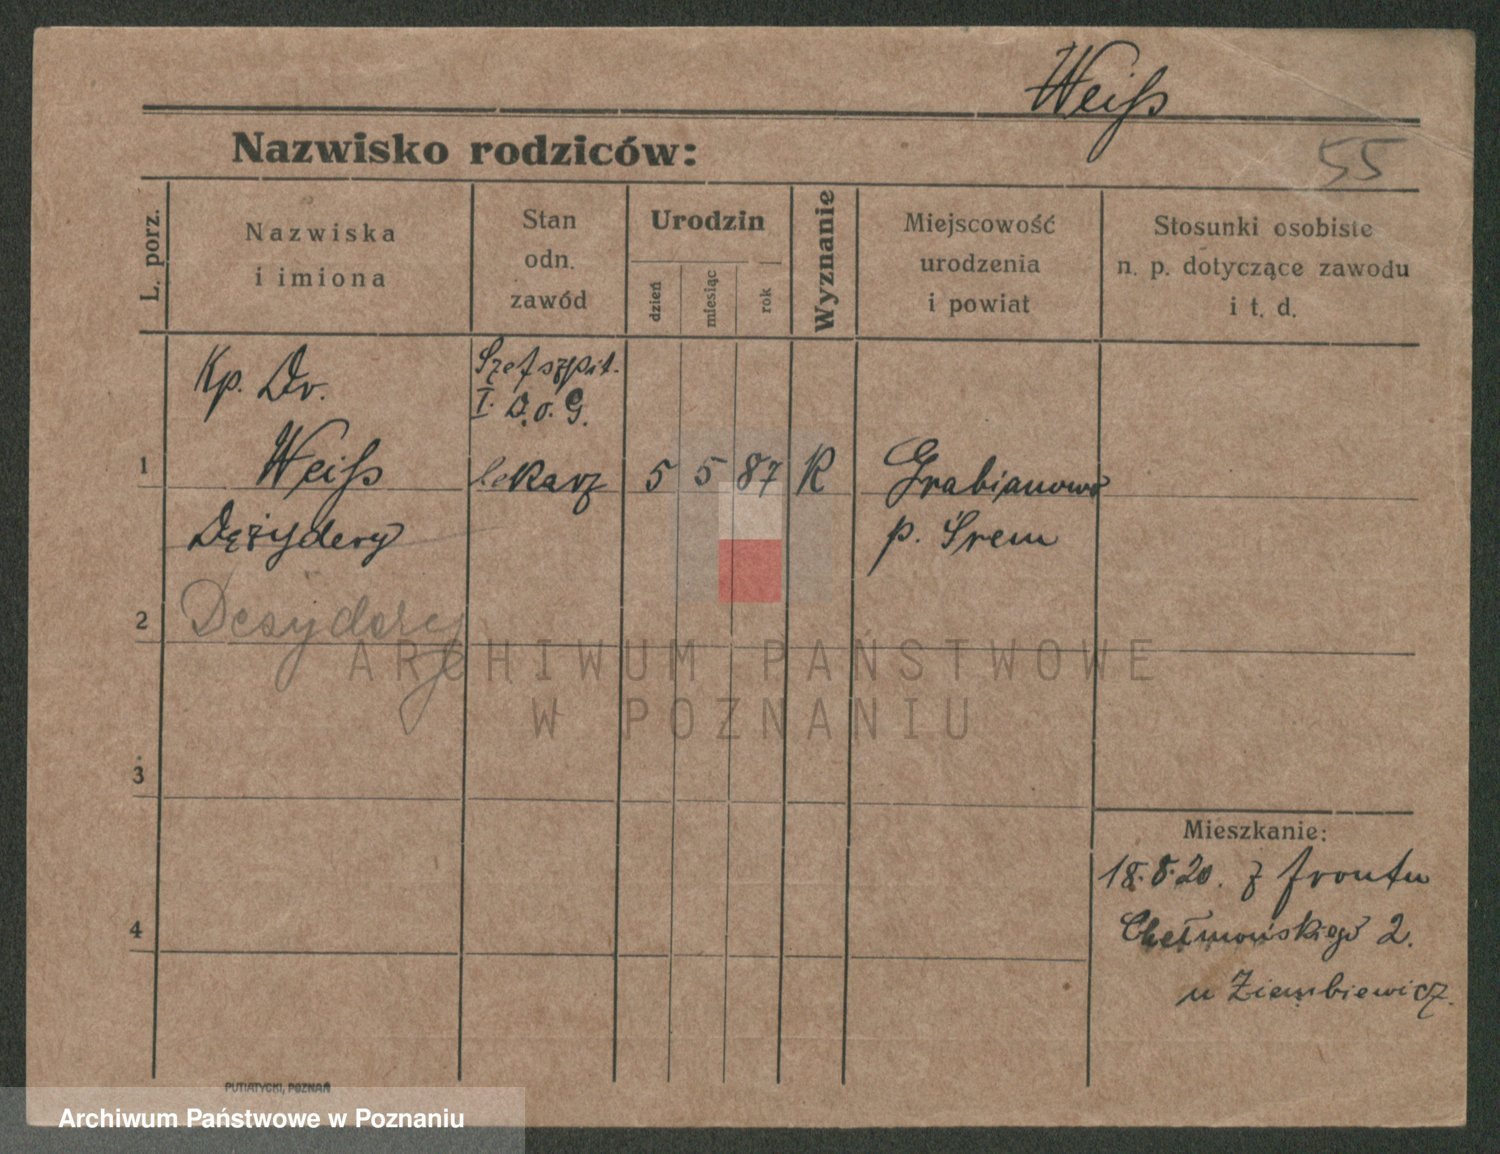 Weiß
Nazwisko rodziców:
55
L. porz.
Nazwiska
i imiona
Stan
odn.
zawód
Urodzin
dzień
miesiąc
rok
Wyznanie
Miejscowość
urodzenia
i powiat
Stosunki osobiste
n. p. dotyczące zawodu
i t. d.
Kp. Dr.
Szef szpit.
I. D. o. G.
1
Weiß
lekarz
5
5
87
R
Grabianowo
Dężydery
p. Śrem
2
Desydery
ARCHIWUM PAŃSTWOWE
W POZNANIU
3
Mieszkanie:
18.8.20. z frontu
4
Chełmońskiego 2.
u Ziembiewicz.
PUTIATYCKI, POZNAŃ
Archiwum Państwowe w Poznaniu